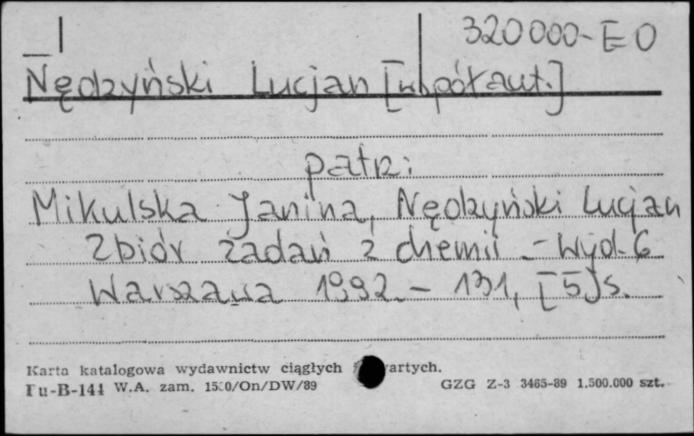 320000-E0
Nędzyński Lucjan [współaut.]
patrz:
Mikulska Janina, Nędzyński Lucjan
Zbiór zadań z chemii - Wyd. 6
Warszawa 1992. - 131, [5] s.
Karta katalogowa wydawnictw ciągłych
Pu-B-144 W.A. zam. /On/DW/89 GZG Z-3 3465-89 1.500.000 szt.